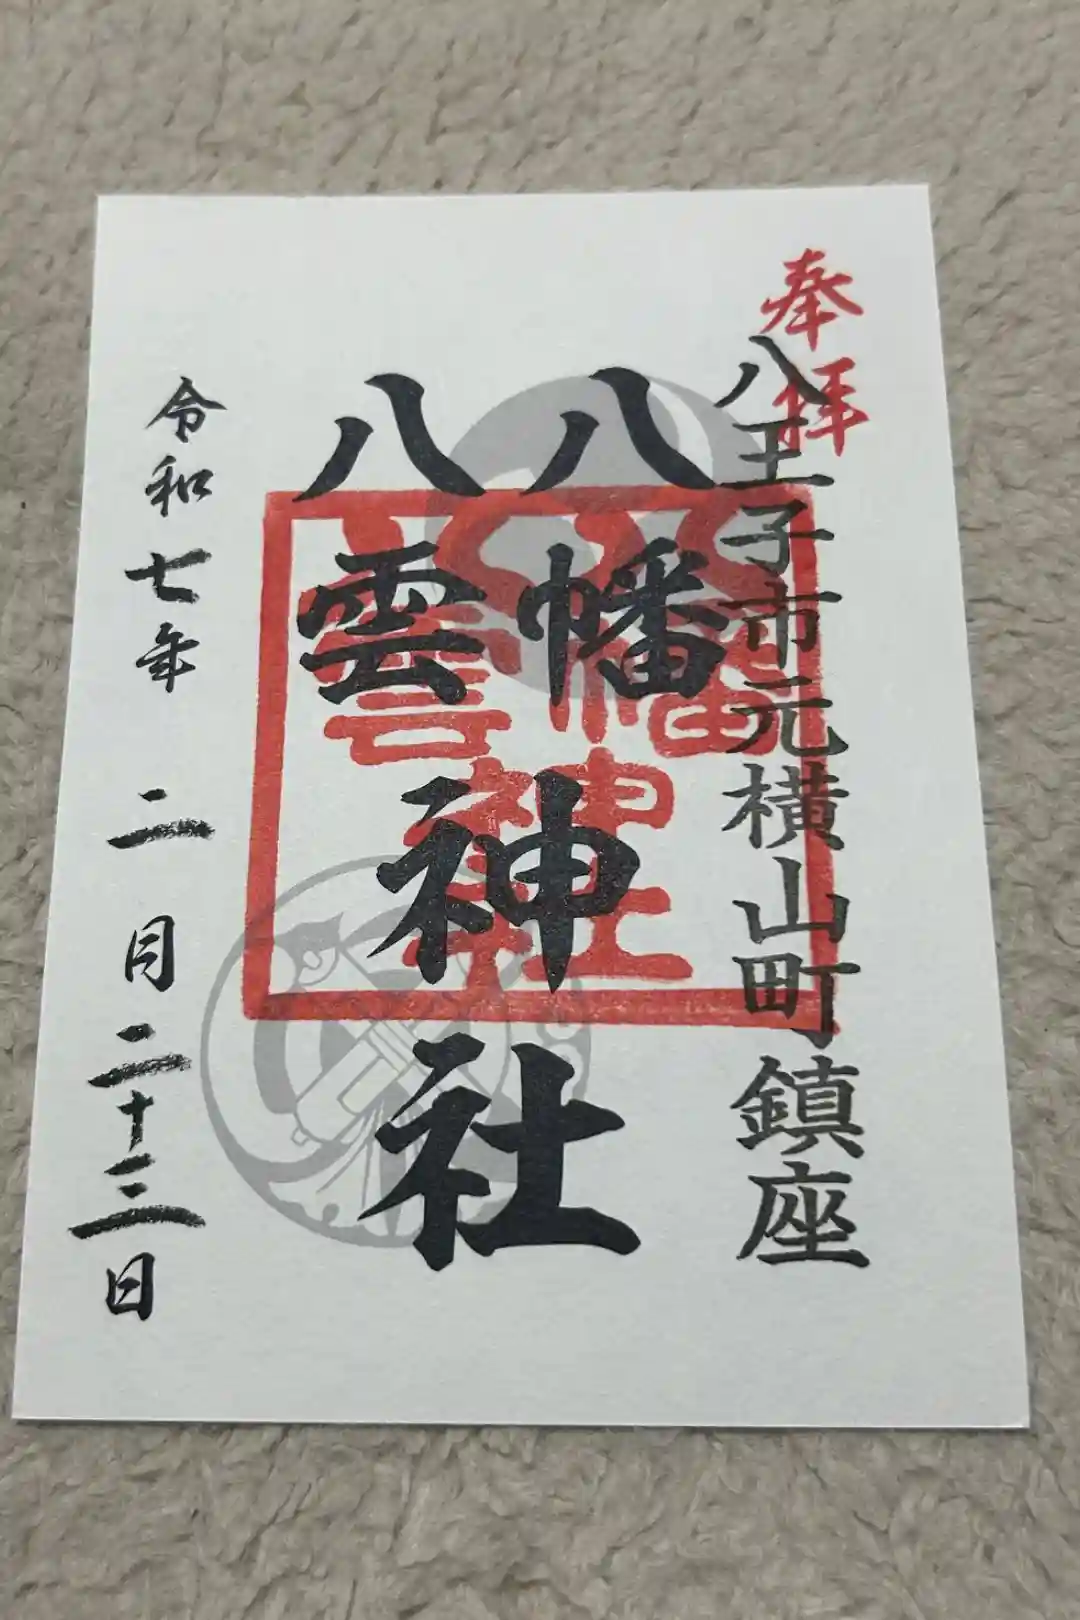 奉拝
八王子市元横山町鎮座
八幡
八雲
神社
八幡
八雲
神社
令和七年二月二十三日